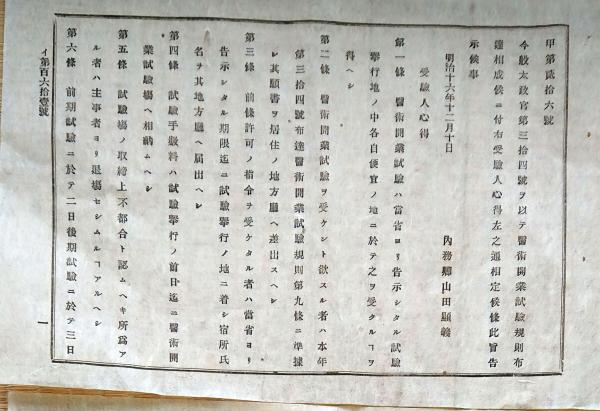 甲第貳拾六號
今般太政官第三拾四號ヲ以テ醫術開業試驗規則布
達相成候ニ付右受驗人心得左之通相定候條此旨告
示候事
明治十六年十二月十日
內務卿山田顯義
受驗人心得
第一條 醫術開業試驗ハ當省ヨリ告示シタル試驗
擧行地ノ中各自便宜ノ地ニ於テ之ヲ受クルヿヲ
得ヘシ
第二條 醫術開業試驗ヲ受ケント欲スル者ハ本年
第三拾四號布達醫術開業試驗規則第九條ニ準據
シ其願書ヲ居住ノ地方廳ヘ差出スヘシ
第三條 前條許可ノ指令ヲ受ケタル者ハ當省ヨリ
告示シタル期限迄ニ試驗擧行ノ地ニ着シ宿所氏
名ヲ其地方廳ヘ届出ヘシ
第四條 試驗手數料ハ試驗擧行ノ前日迄ニ醫術開
業試驗場ヘ相納ムヘシ
第五條 試驗場ノ取締上不都合ト認ムヘキ所爲ア
ル者ハ主事者ヨリ退場セシムルヿアルヘシ
第六條 前期試驗ニ於テ二日後期試驗ニ於テ三日
イ第百六拾壹號
一